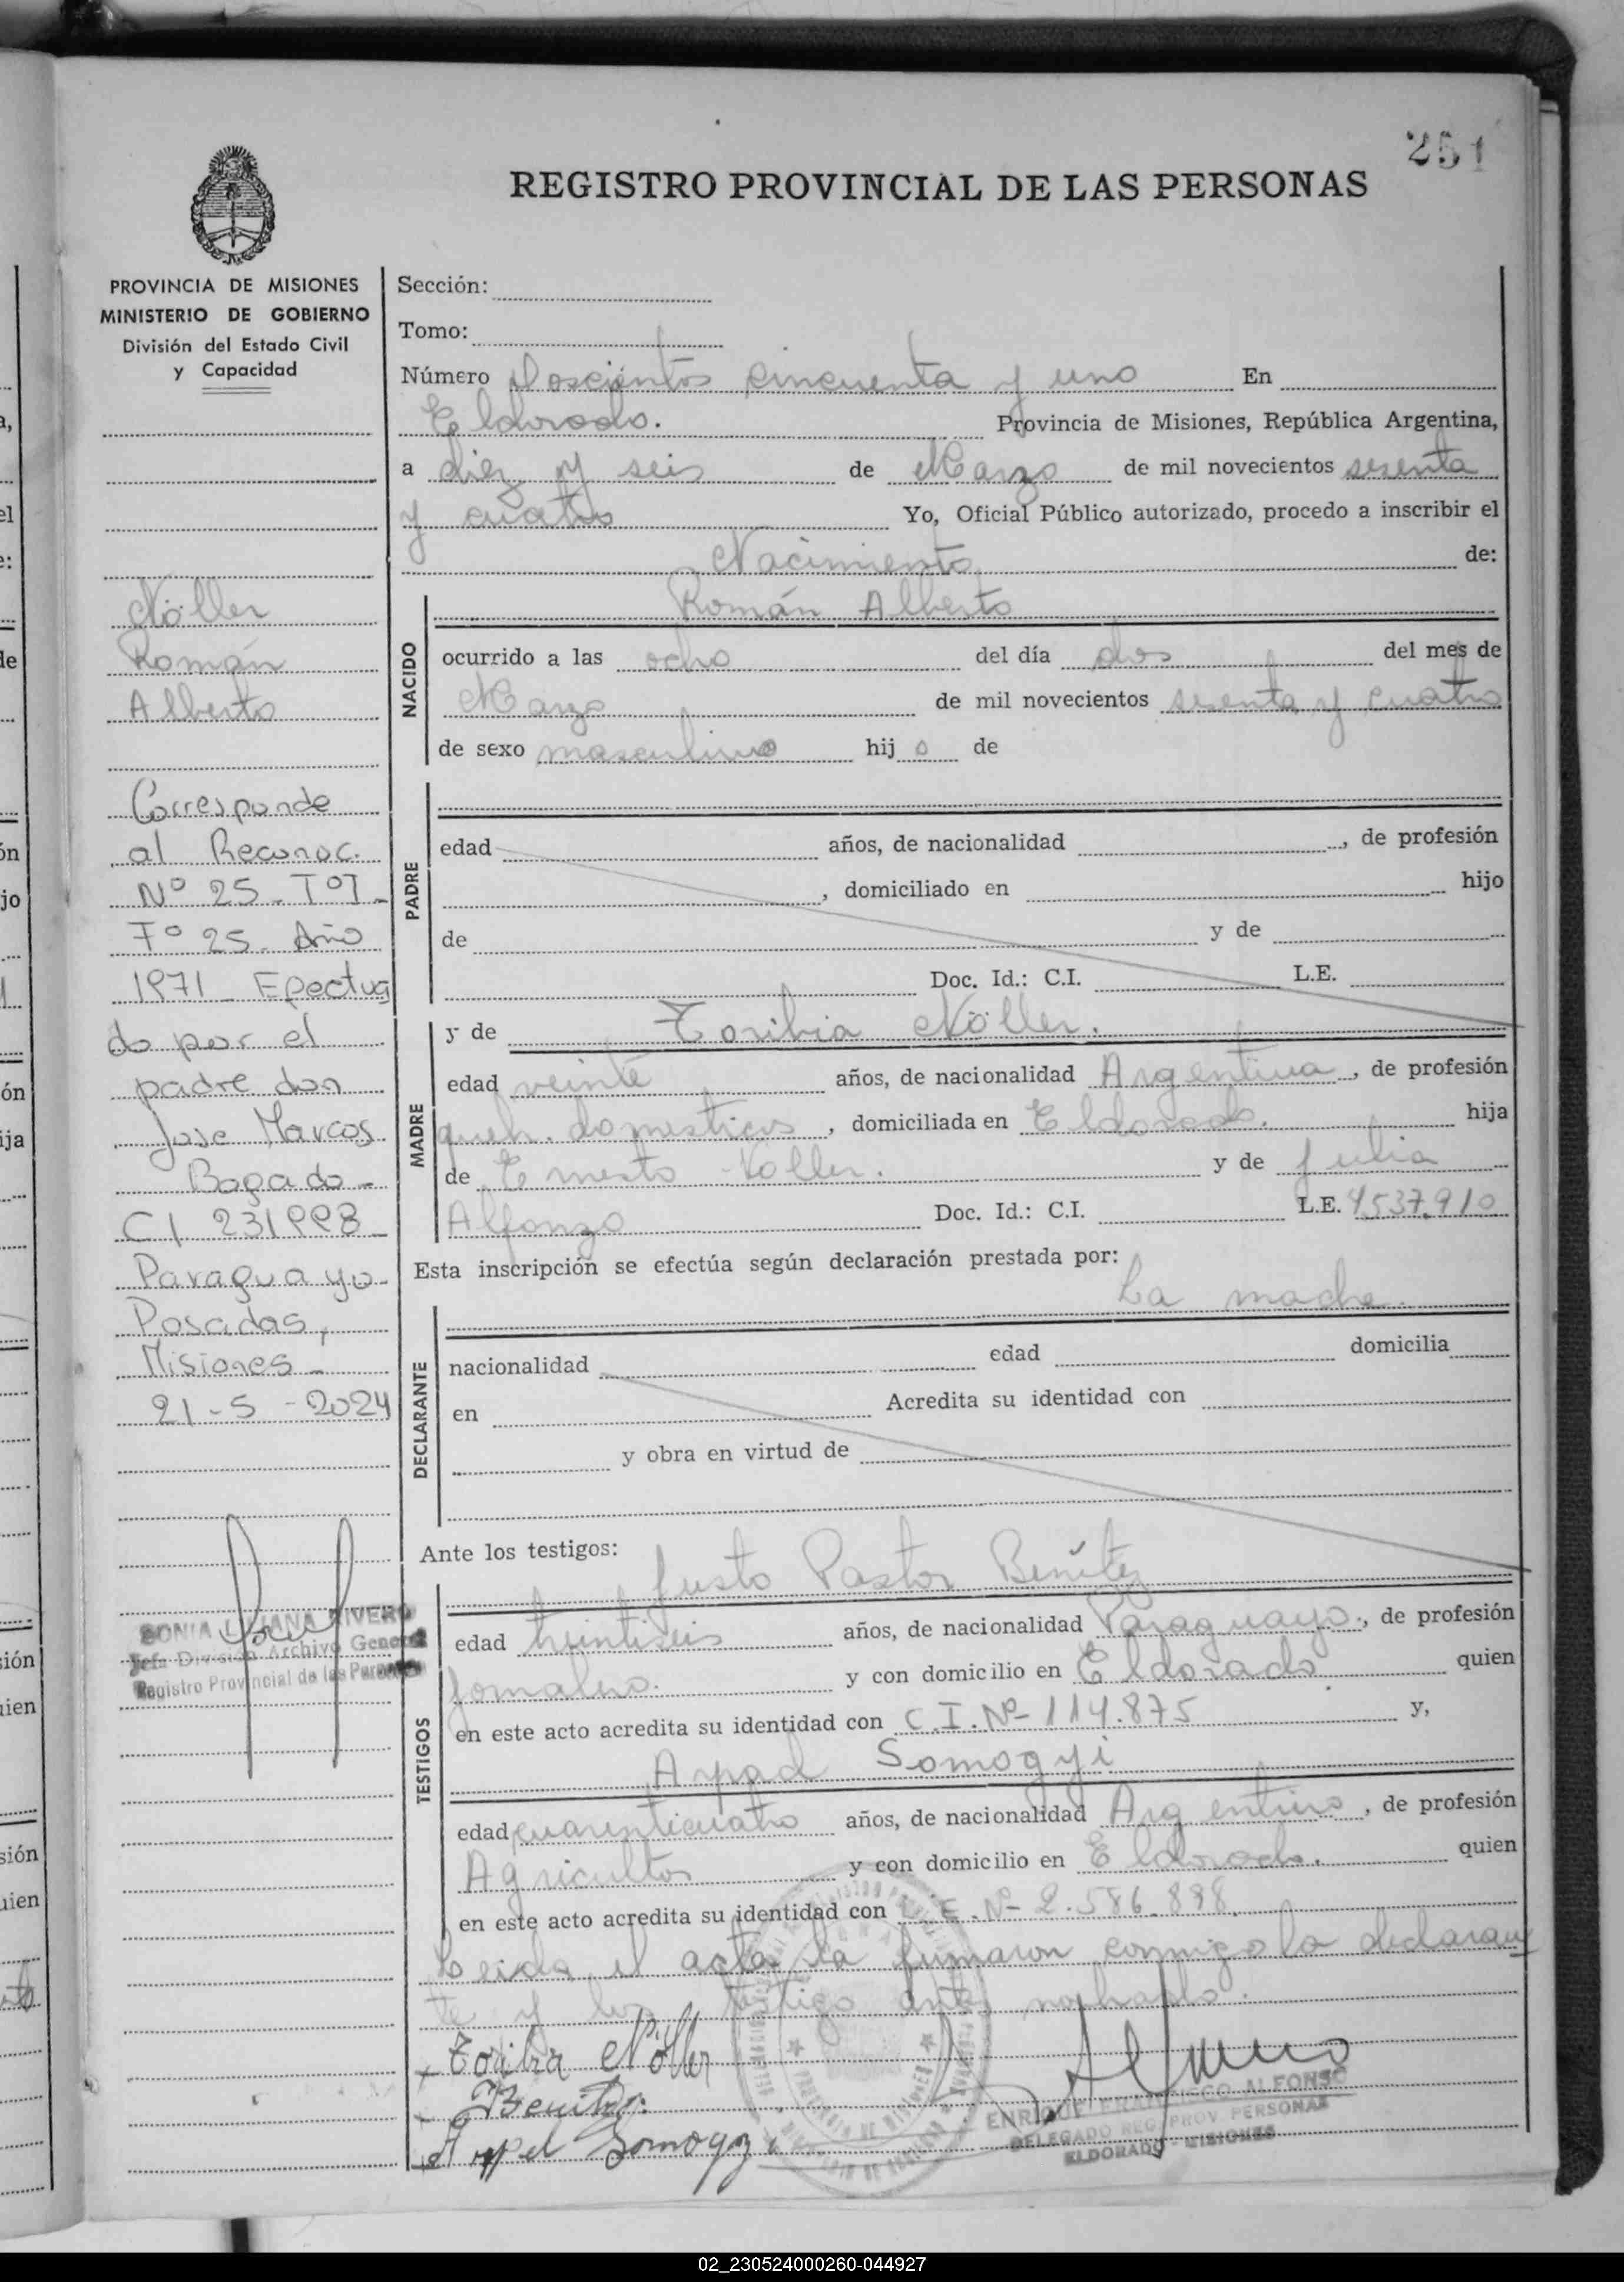 251
REGISTRO PROVINCIAL DE LAS PERSONAS
PROVINCIA DE MISIONES
MINISTERIO DE GOBIERNO
División del Estado Civil
y Capacidad
Nöller
Román
Alberto
Corresponde
al Reconoc.
Nº 25_ TºI_
Fº 25_ Año
1971_ Efectua
do por el
padre don
Jose Marcos
Bogado_
CI 231998_
Paraguayo_
Posadas,
Misiones_
21-5-2024
SONIA LILIANA RIVERO
Jefa División Archivo General
Registro Provincial de las Personas
Sección:
Tomo:
Número Doscientos cincuenta y uno En
Eldorado. Provincia de Misiones, República Argentina,
a diez y seis de Marzo de mil novecientos sesenta
y cuatro Yo, Oficial Público autorizado, procedo a inscribir el
Nacimiento de:
NACIDO
Román Alberto
ocurrido a las ocho del día dos del mes de
Marzo de mil novecientos sesenta y cuatro
de sexo masculino hijo de
PADRE
edad años, de nacionalidad , de profesión
, domiciliado en hijo
de y de
Doc. Id.: C.I. L.E.
MADRE
y de Toribia Nöller.
edad veinte años, de nacionalidad Argentina, de profesión
queh. domesticos, domiciliada en Eldorado. hija
de Ernesto Nöller. y de Julia
Alfonzo Doc. Id.: C.I. L.E. 4537.910
Esta inscripción se efectúa según declaración prestada por:
La madre.
DECLARANTE
nacionalidad edad domicilia
en Acredita su identidad con
y obra en virtud de
Ante los testigos:
TESTIGOS
Justo Pastor Benítez
edad treintiseis años, de nacionalidad Paraguayo., de profesión
Jornalero. y con domicilio en Eldorado quien
en este acto acredita su identidad con C.I.Nº-114.875 y,
Arpad Somogyi
edad cuarenticuatro años, de nacionalidad Argentino, de profesión
Agricultor y con domicilio en Eldorado. quien
en este acto acredita su identidad con L.E.Nº-2.586.898.
Leida el acta la firmaron conmigo la declaran
te y los testigo antes nombrado.
Toribia Nöller
Benitez
Arpad Somogyi
ENRIQUE FRANCISCO ALFONSO
DELEGADO REG. PROV PERSONAS
ELDORADO - MISIONES
02_230524000260-044927